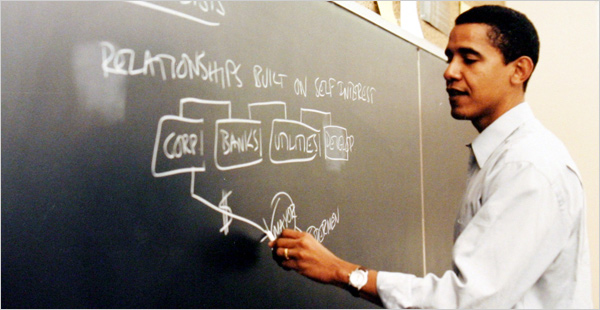 RELATIONSHIPS BUILT ON SELF INTEREST
CORP. BANKS UTILITIES DEVELOP
$ MAYOR